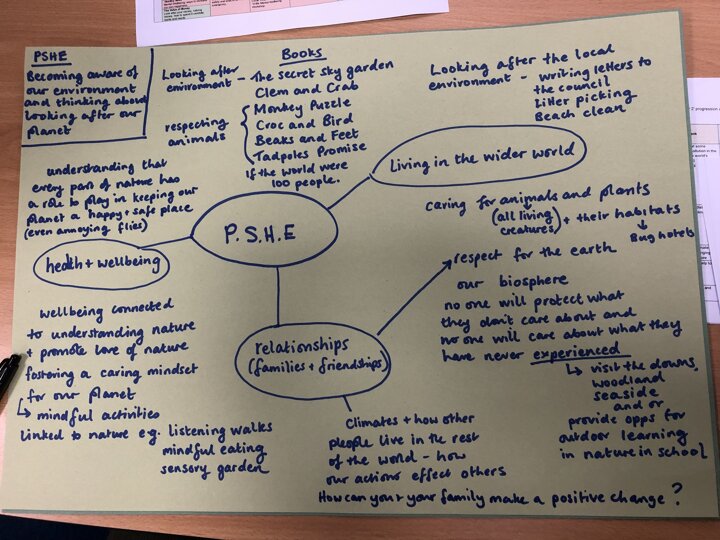 PSHE
Becoming aware of
our environment
and thinking about
looking after our
planet
Books
Looking after
environment - The secret sky garden
Clem and Crab
respecting
animals
Monkey Puzzle
Croc and Bird
Beaks and Feet
Tadpoles Promise
If the world were
100 people.
Looking after the local
environment - writing letters to
the council
Litter picking
Beach clean
Living in the wider world
understanding that
every part of nature has
a role to play in keeping our
planet a happy + safe place
(even annoying flies)
P.S.H.E
health + wellbeing
caring for animals and plants
(all living
creatures)
+ their habitats
Bug hotels
respect for the earth
our biosphere
no one will protect what
they don't care about and
no one will care about what they
have never experienced
visit the downs,
woodland
seaside
and or
provide opps for
outdoor learning
in nature in school
wellbeing connected
to understanding nature
+ promote love of nature
fostering a caring mindset
for our planet
mindful activities
Linked to nature e.g. listening walks
mindful eating
sensory garden
relationships
(families + friendships)
Climates + how other
people live in the rest
of the world - how
our actions effect others
How can you + your family make a positive change?